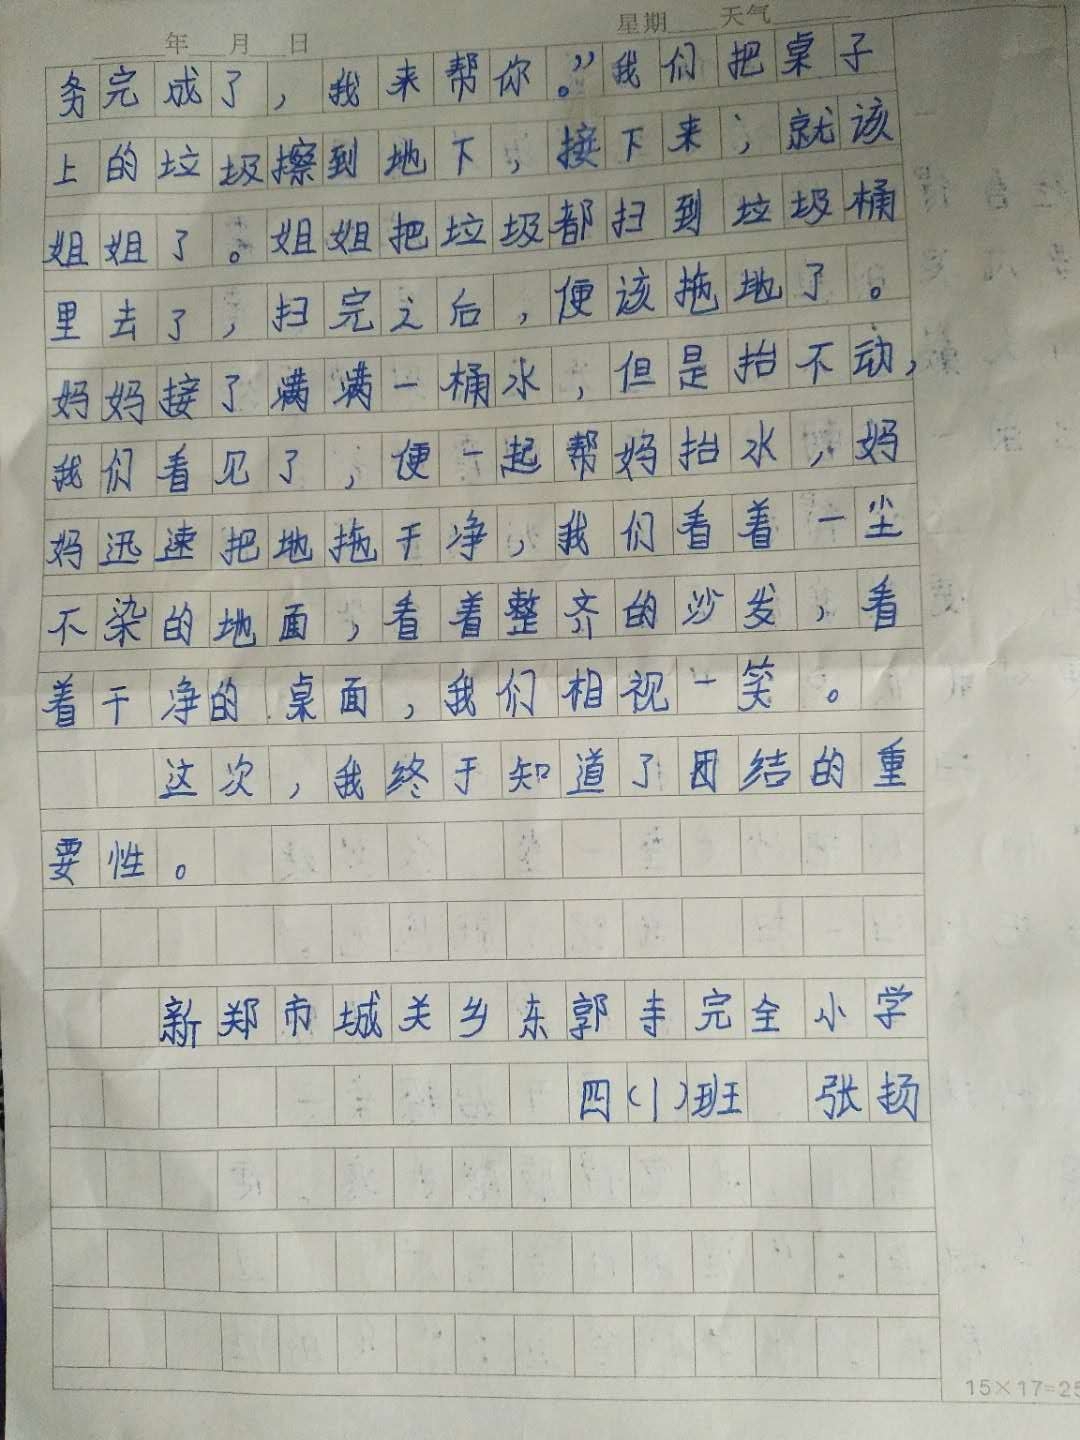 年 月 日 星期 天气
务完成了，我来帮你。”我们把桌子
上的垃圾擦到地下，接下来，就该
姐姐了。姐姐把垃圾都扫到垃圾桶
里去了，扫完之后，便该拖地了。
妈妈接了满满一桶水，但是抬不动，
我们看见了，便一起帮妈抬水，妈
妈迅速把地拖干净，我们看着一尘
不染的地面，看着整齐的沙发，看
着干净的桌面，我们相视一笑。
这次，我终于知道了团结的重
要性。
新郑市城关乡东郭寺完全小学
四(1)班 张扬
15×17=25